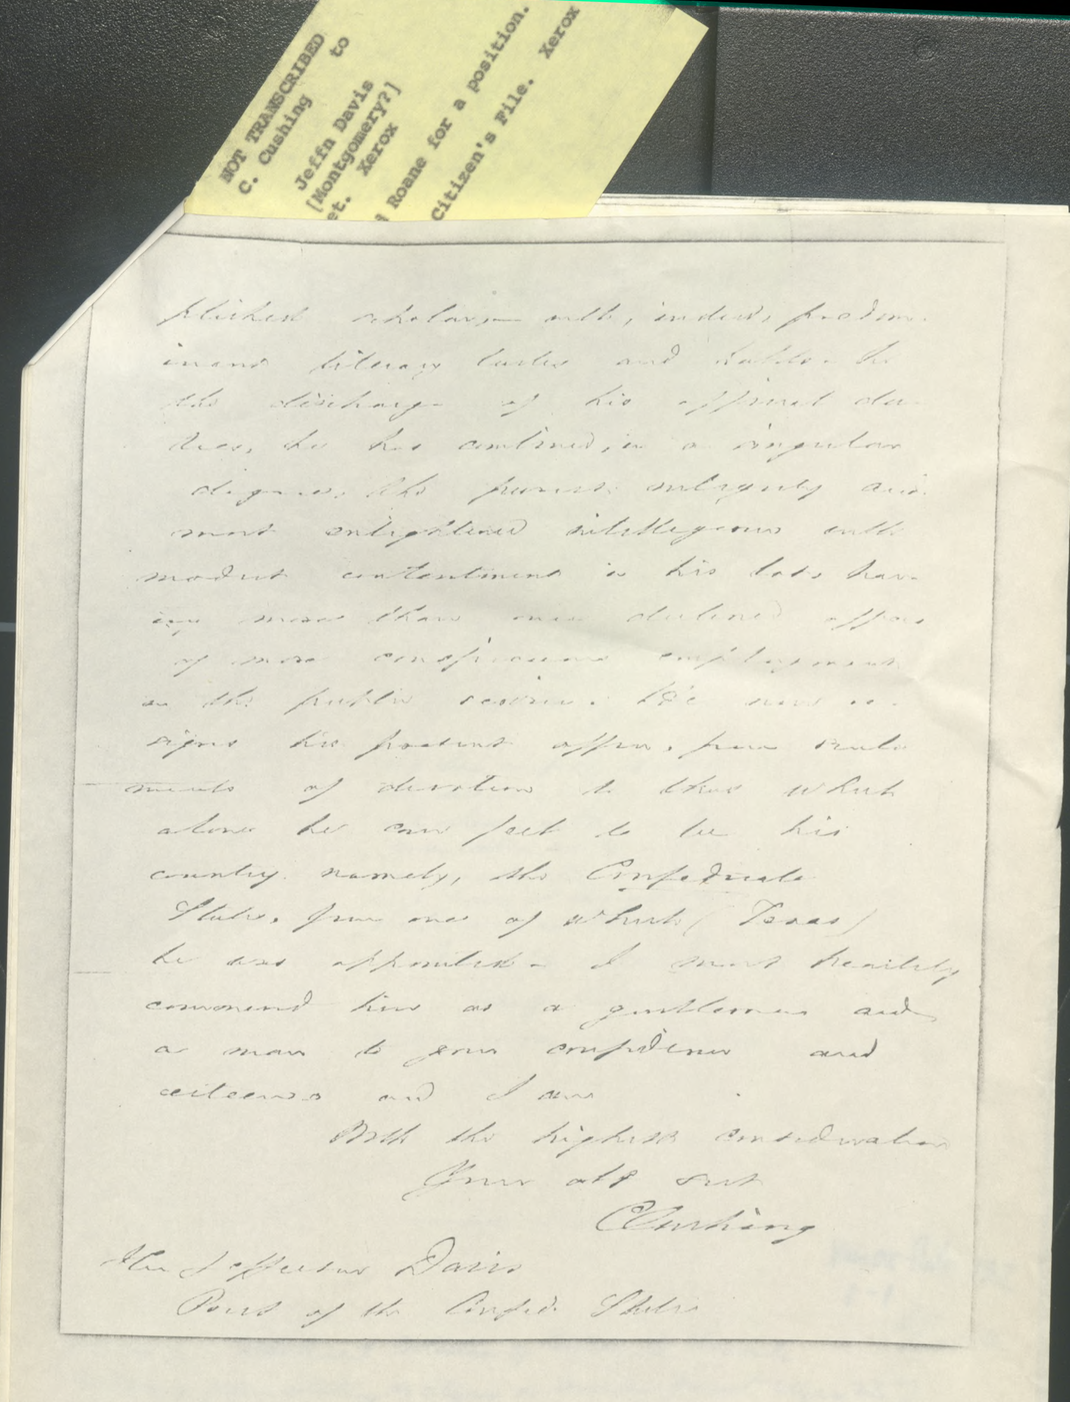 NOT TRANSCRIBED
C. Cushing to
Jeffn Davis
[Montgomery?]
et. Xerox
Roane for a position.
Citizen's File. Xerox
plished scholar, — with, indeed, predom-
inant literary tastes and habits — in
the discharge of his official du-
ties, he has combined, in a singular
degree, the purest integrity and
most enlightened intelligence with
modest contentment in his lot, hav-
ing more than once declined offers
of more conspicuous employment
in the public service. He now re-
signs his present office, from senti-
ments of devotion to that which
alone he can feel to be his
country, namely, the Confederate
States, from one of which (Texas)
he was appointed. — I most heartily
commend him as a gentleman and
a man to your confidence and
esteem; and I am
With the highest consideration
Your obt servt
C Cushing
Hon Jefferson Davis
Prest of the Confed. States